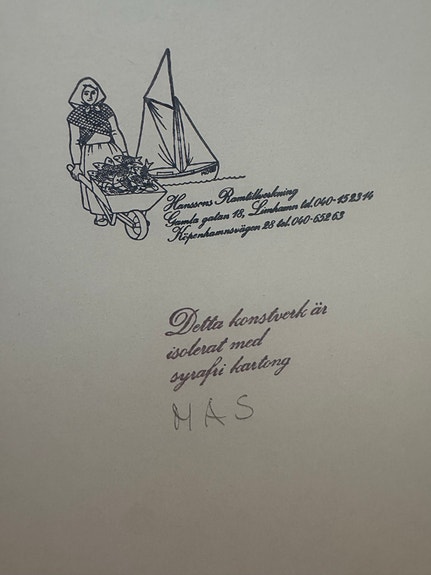 Hanssons Ramtillverkning
Gamla gatan 18, Limhamn tel. 040-152314
Köpenhamnsvägen 28 tel. 040-65263
Detta konstverk är
isolerat med
syrafri kartong
MAS